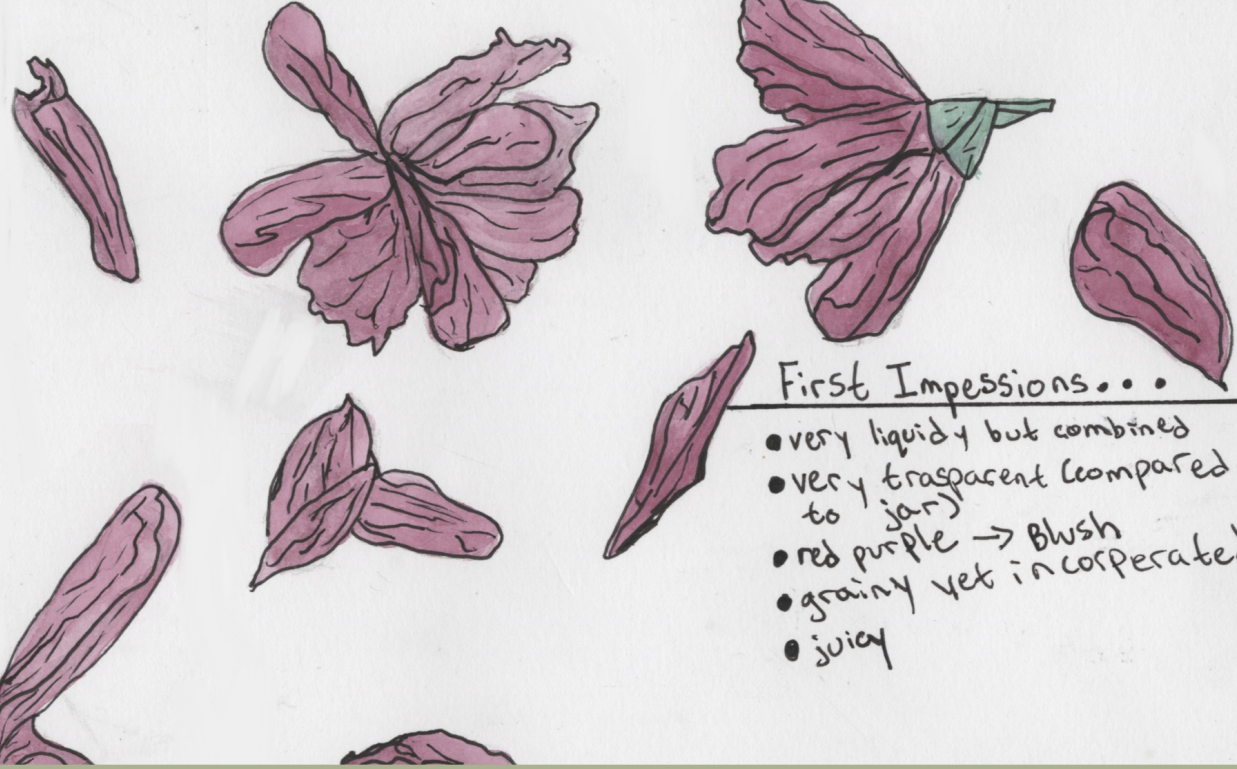 First Impessions...
• very liquidy but combined
• very trasparent (compared
to jar)
• red purple → Blush
• grainy yet incorperated
• juicy